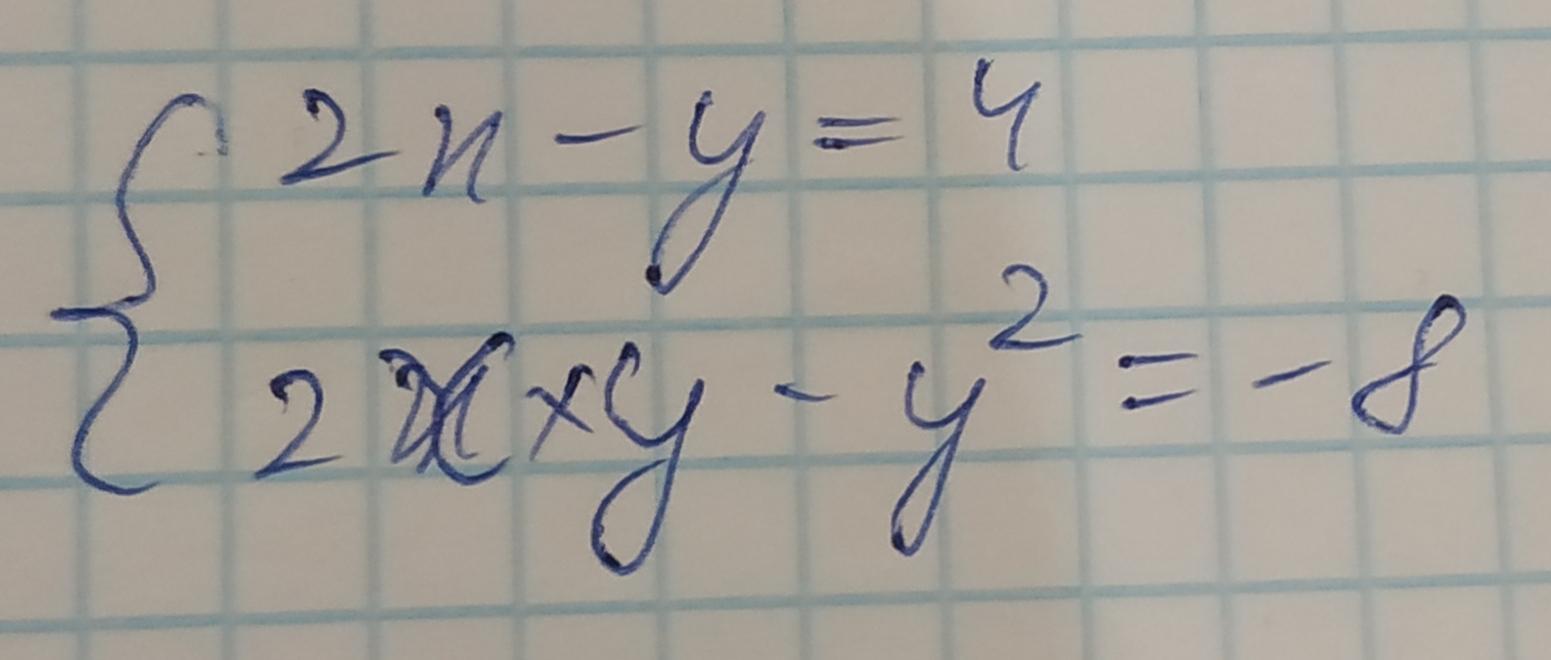 2x - y = 4
2x × y - y² = -8